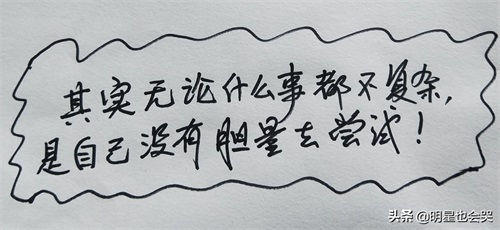 其实无论什么事都不复杂,
是自己没有胆量去尝试!
头条 @明星也会哭